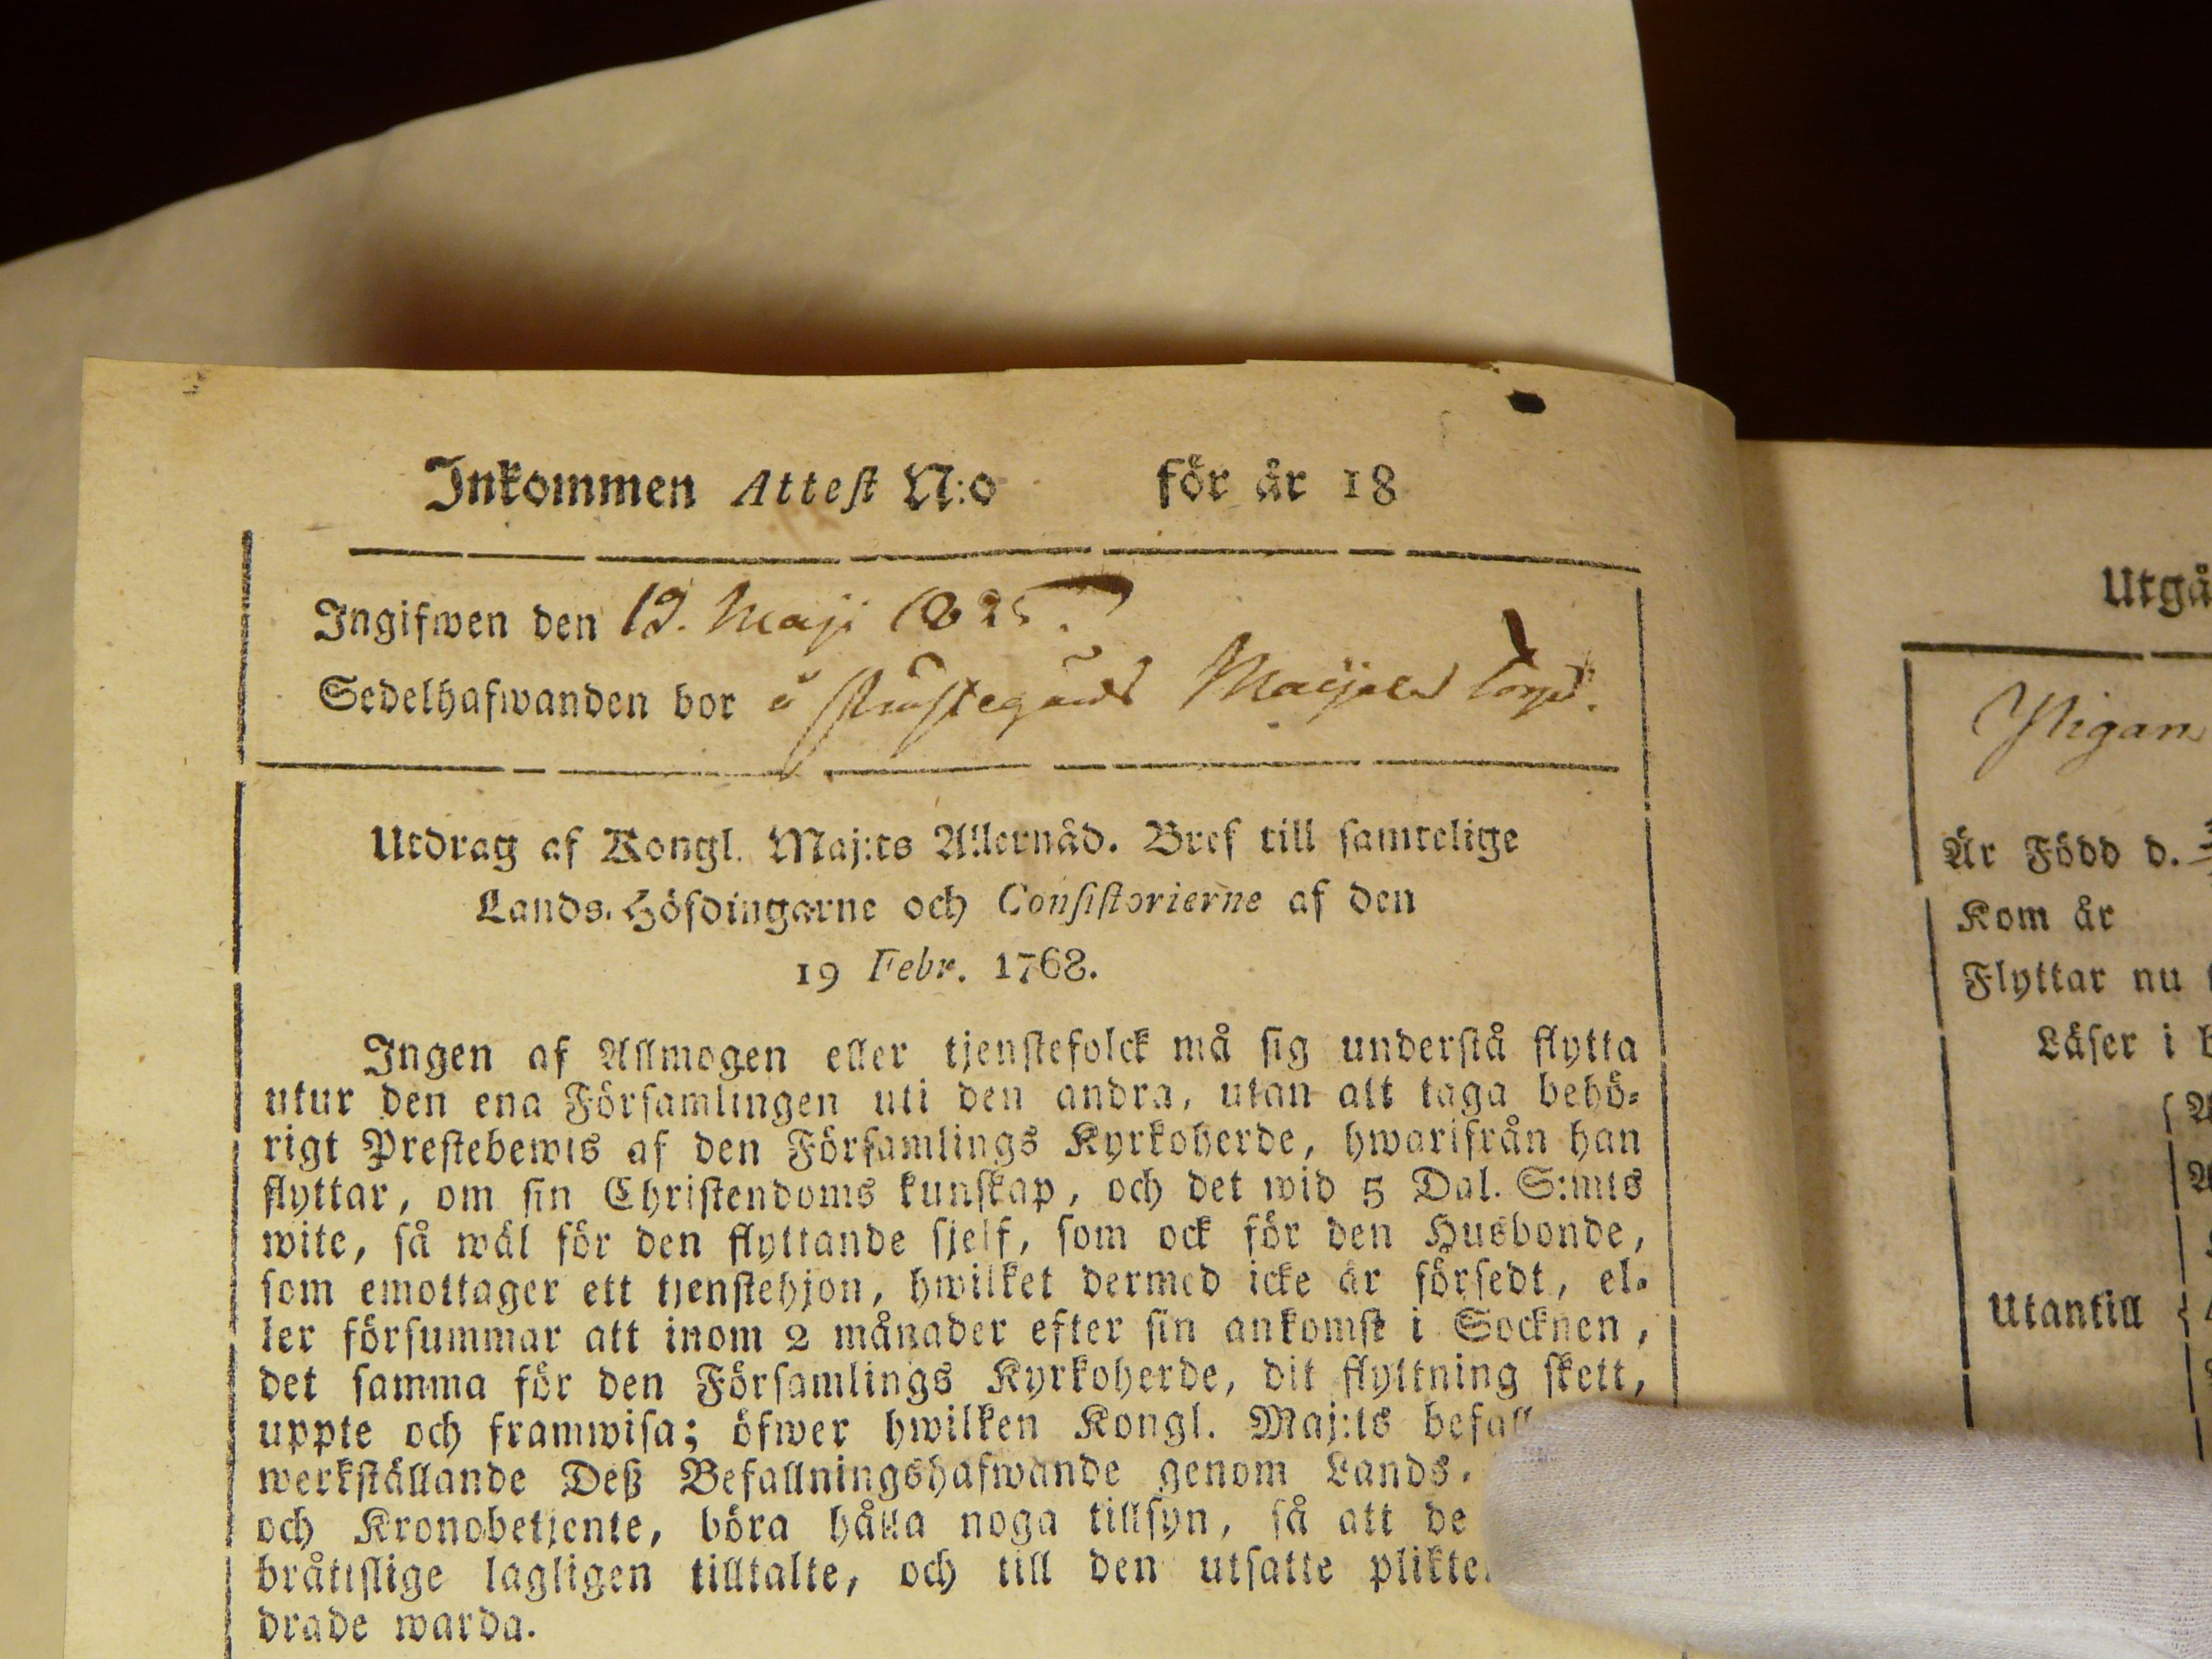 Inkommen Attest N:o för år 18
Ingifwen den 19. Maji 1825.
Sedelhafwanden bor å
Utdrag af Kongl. Maj:ts Allernåd. Bref till samtelige
Lands-Höfdingarne och Consistorierne af den
19 Febr. 1768.
Ingen af Allmogen eller tjenstefolck må sig understå flytta
utur den ena Församlingen uti den andra, utan att taga behö-
rigt Prestebewis af den Församlings Kyrkoherde, hwarifrån han
flyttar, om sin Christendoms kunskap, och det wid 5 Dal. S:mts
wite, så wäl för den flyttande sjelf, som ock för den Husbonde,
som emottager ett tjenstehjon, hwilket dermed icke är försedt, el-
ler försummar att inom 2 månader efter sin ankomst i Socknen,
det samma för den Församlings Kyrkoherde, dit flyttning skett,
uppte och framwisa; öfwer hwilken Kongl. Maj:ts befall
werkställande Deß Befallningshafwande genom Lands-
och Kronobetjente, böra hålla noga tillsyn, så att de
bråttslige lagligen tilltalte, och till den utsatte plikte
drade warda.
Utgå
Pigan
Är Född d.
Kom år
Flyttar nu
Läser i b
Utantill